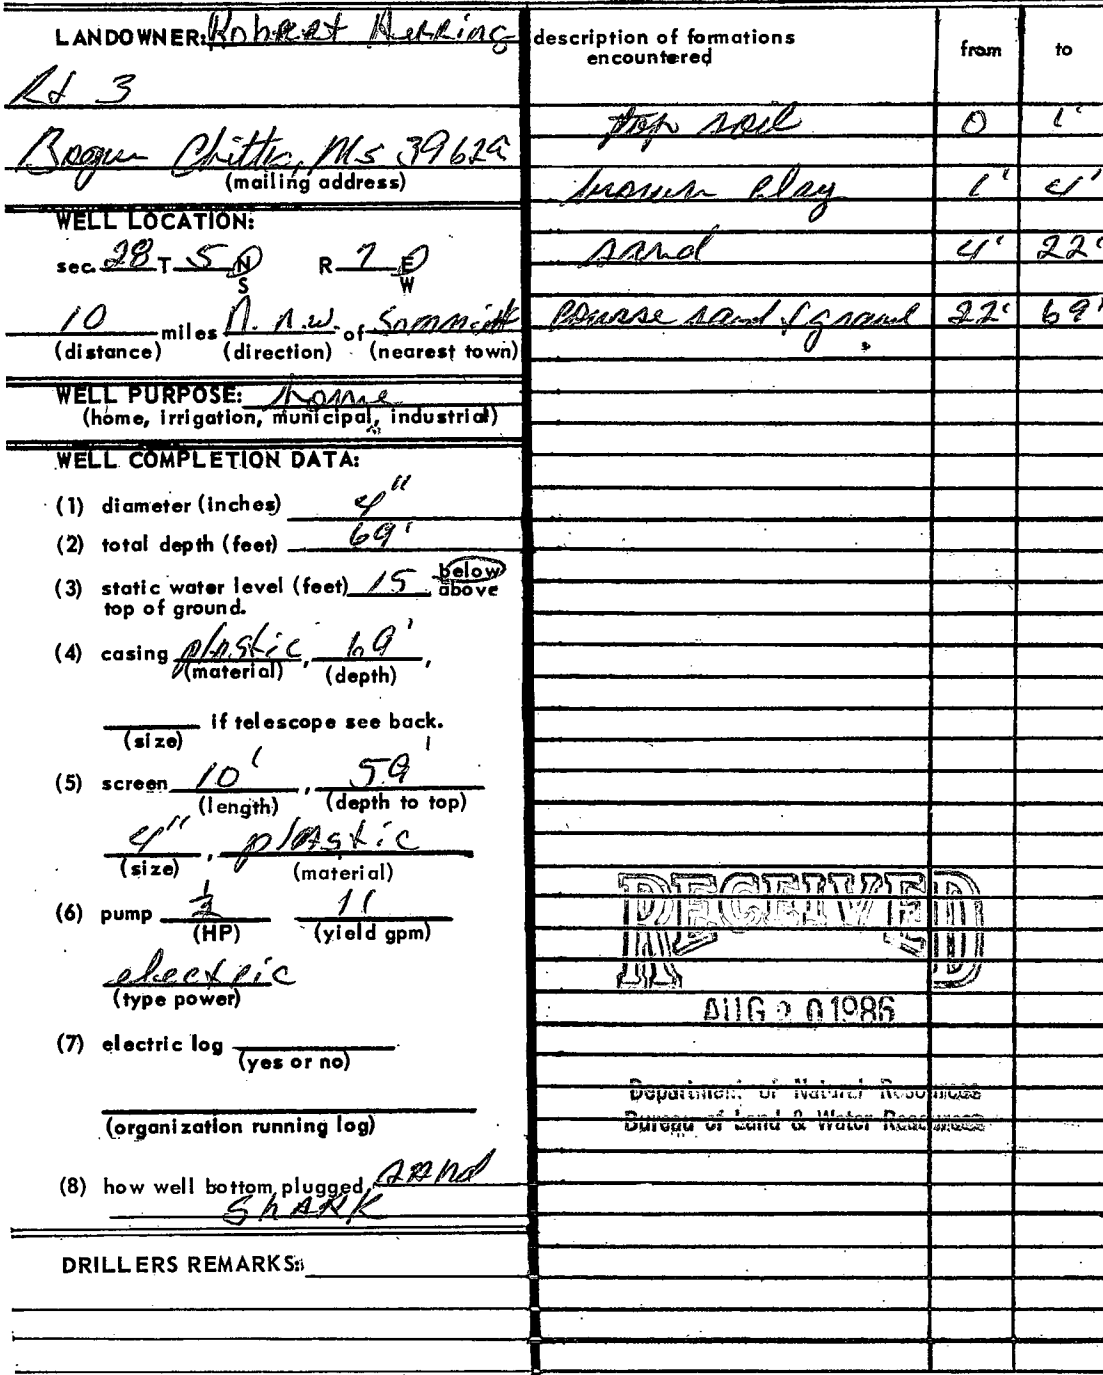 LANDOWNER: Robert Herring
Rt 3
Bogue Chitto, Ms 39629
(mailing address)
WELL LOCATION:
sec. 28 T 5 N R 7 E
S W
10 miles N. n.w. of Summitt
(distance) (direction) (nearest town)
WELL PURPOSE: home
(home, irrigation, municipal, industrial)
WELL COMPLETION DATA:
(1) diameter (inches) 4"
(2) total depth (feet) 69'
(3) static water level (feet) 15 below
above
top of ground.
(4) casing plastic, 69',
(material) (depth)
if telescope see back.
(size)
(5) screen 10', 59'
(length) (depth to top)
4", plastic
(size) (material)
(6) pump 1/2 11
(HP) (yield gpm)
electric
(type power)
(7) electric log
(yes or no)
(organization running log)
(8) how well bottom plugged, sand
shark
DRILLERS REMARKS:
description of formations
encountered
from to
top soil 0 1'
brown clay 1' 4'
sand 4' 22'
course sand & gravel 22' 69'
RECEIVED
AUG 20 1986
Department of Natural Resources
Bureau of Land & Water Resources